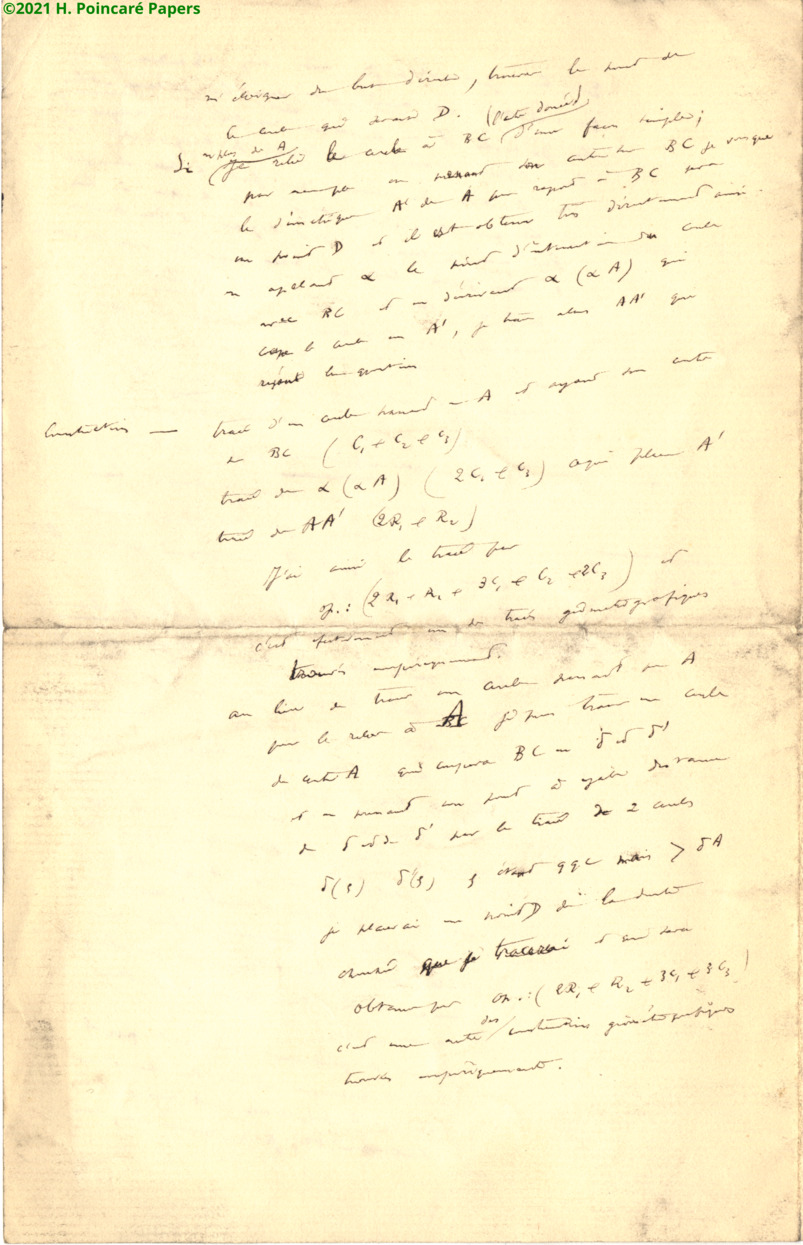 ©2021 H. Poincaré Papers
m'éloigner du but désiré, trouver le point de
le cercle qui donne D. (Note donnée)
Si je relie le cercle à BC d'une façon simple;
par exemple en prenant son centre sur BC je vois que
le symétrique A' de A par rapport à BC sera
un point D et il est obtenu très directement ainsi.
en appelant α le point d'intersection du cercle
avec BC et en décrivant α (α A) qui
coupe le cercle en A', je trace alors AA' que
résout la question
Construction — tracé d'un cercle passant en A et ayant son centre
sur BC (C₁ + C₂ + C₃)
tracé de α (α A) (2C₁ + C₃) qui place A'
tracé de AA' (2R₁ + R₂)
J'ai ainsi le tracé par
op.: (2R₁ + R₂ + 3C₁ + C₂ + 2C₃) et
c'est justement un des tracés géométrographiques
trouvés empiriquement.
au lieu de tracer un cercle passant par A
pour le relier à A je puis tracer un cercle
de centre A qui coupera BC en δ et δ'
et en prenant un point à égale distance
de δ et de δ' par le tracé de 2 cercles
δ(ρ) δ'(ρ) ρ étant qqc mais > δA
je placerai un point D de la droite
cherchée que je tracerai et qui sera
obtenue par op.: (2R₁ + R₂ + 3C₁ + 3C₃)
c'est une autre des constructions géométrographiques
trouvées empiriquement.